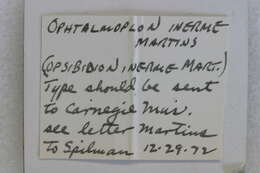 OPHTALMOPLON INERME
MARTINS
(OPSIBIDION INERME MART.)
Type should be sent
to Carnegie Mus.
see letter Martins
to Spilman 12-29-72